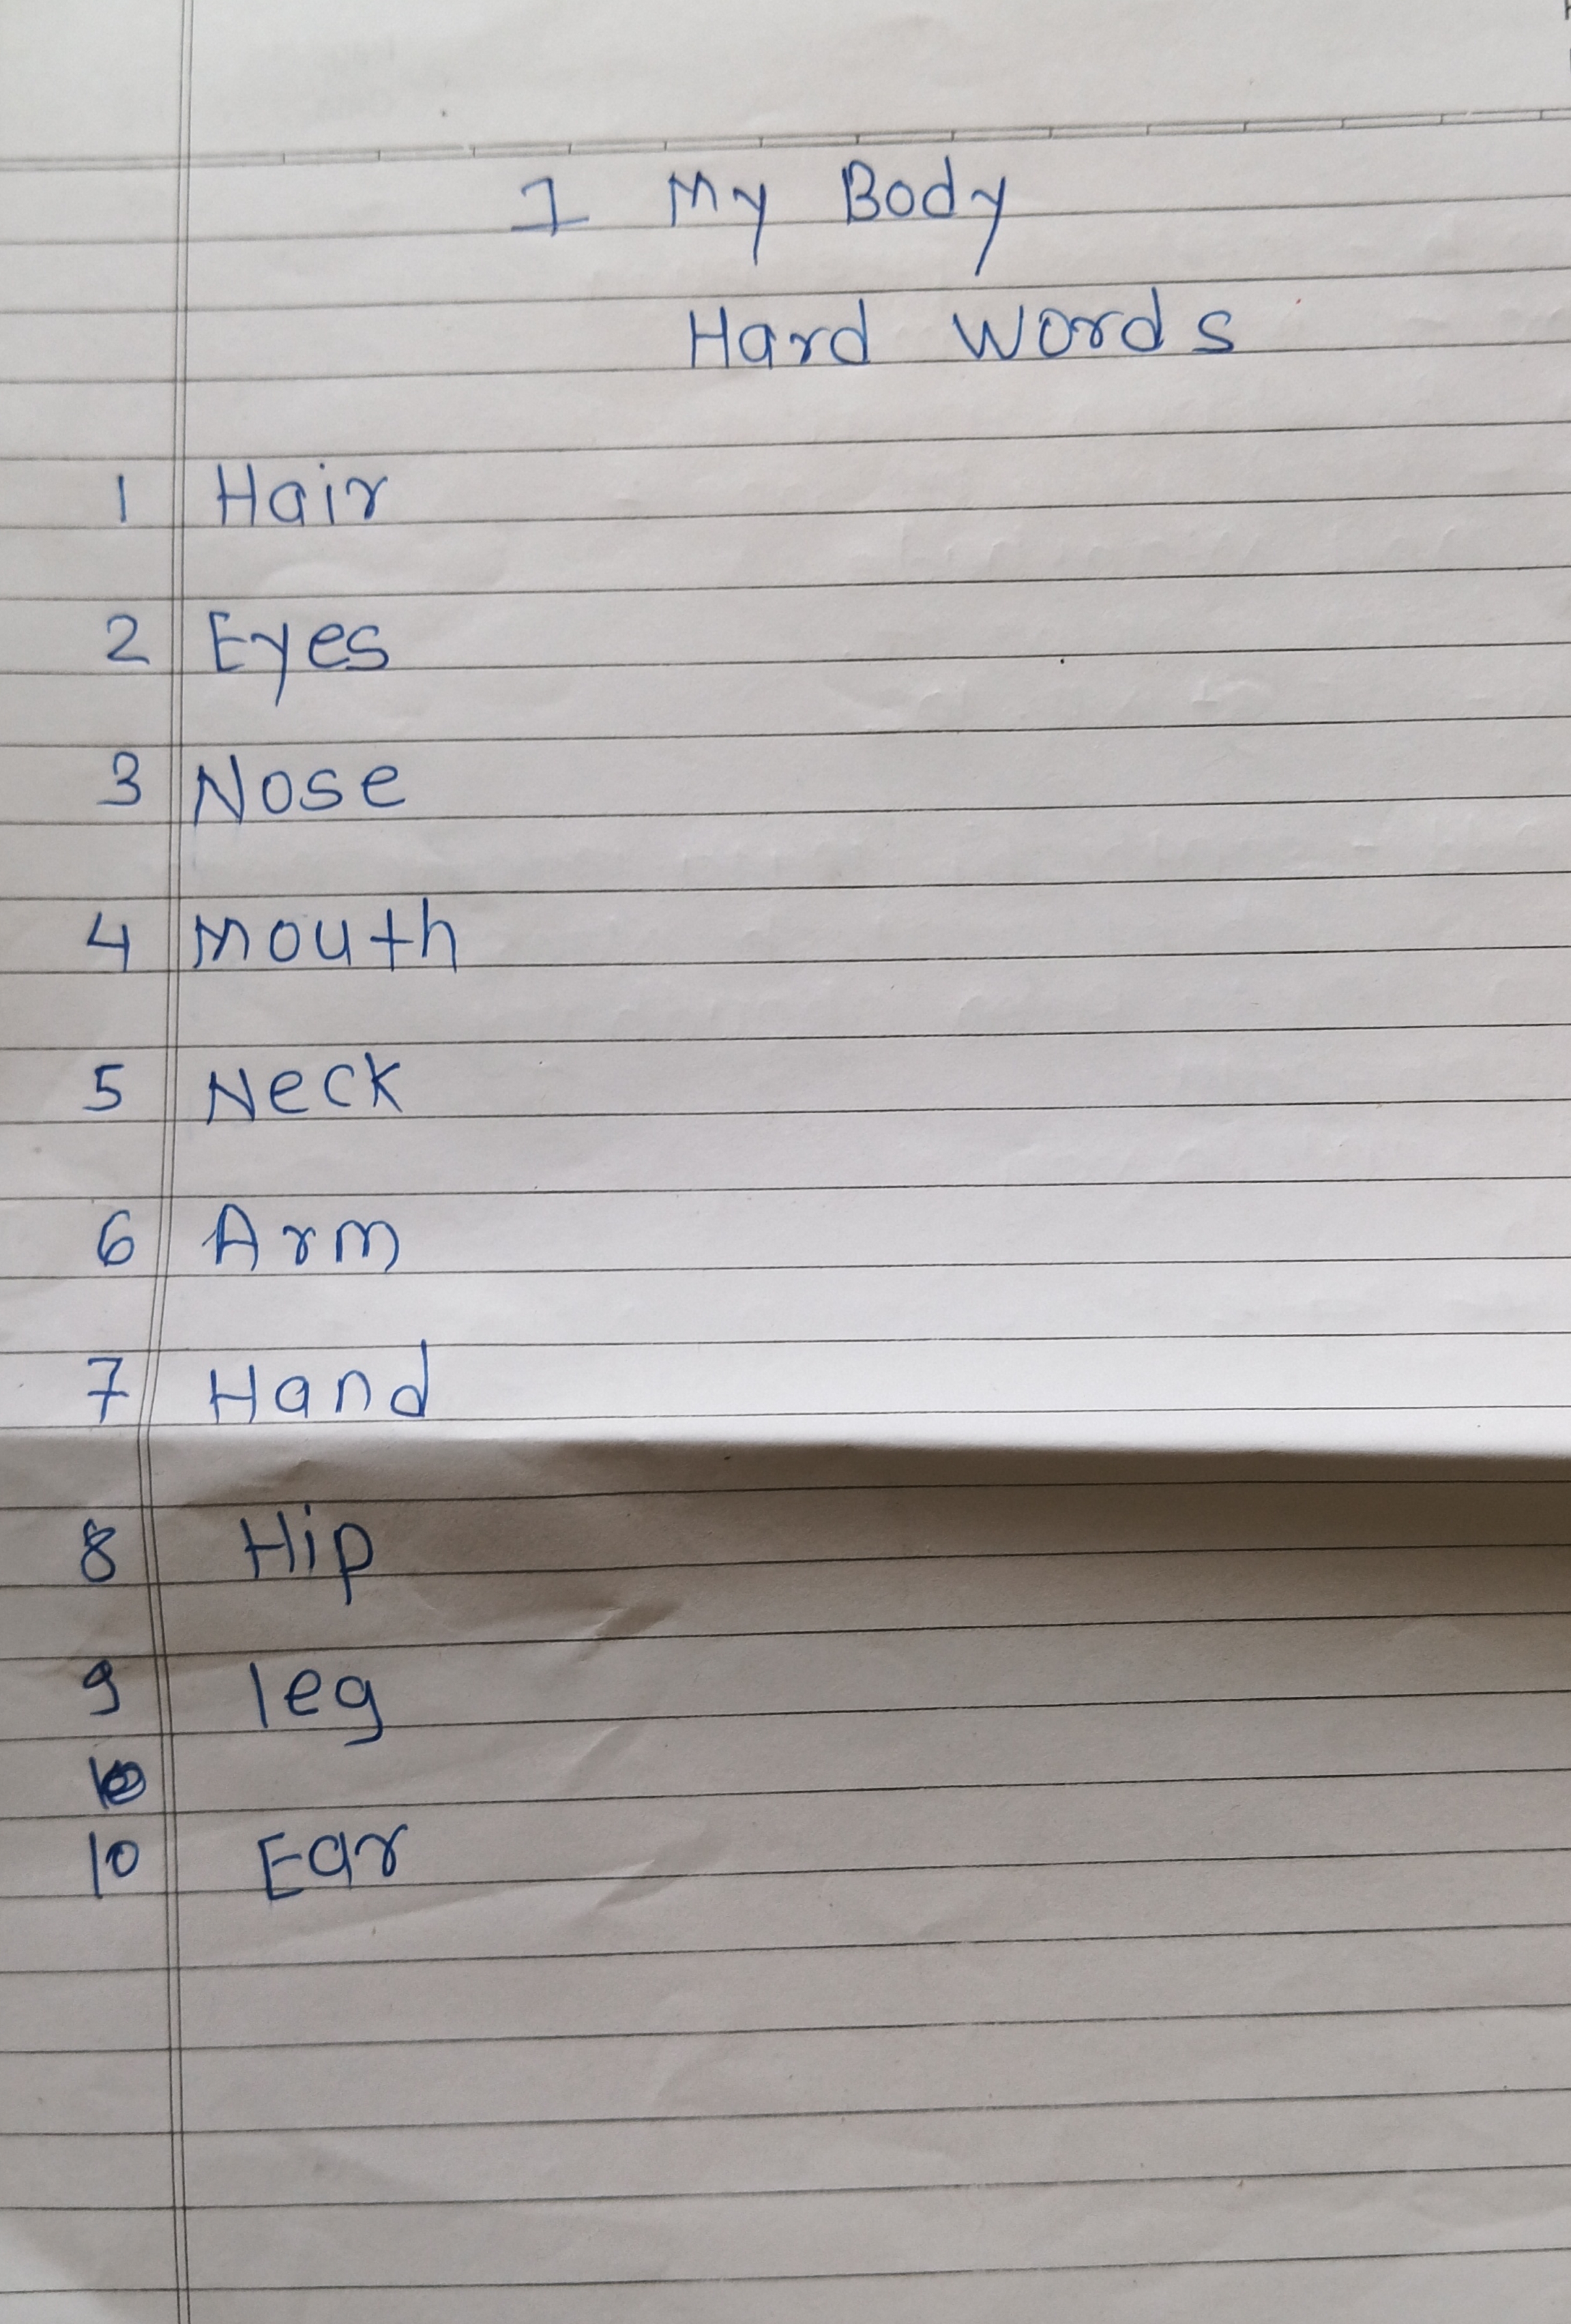 1 My Body
Hard Words
1 Hair
2 Eyes
3 Nose
4 Mouth
5 Neck
6 Arm
7 Hand
8 Hip
9 leg
10 Ear